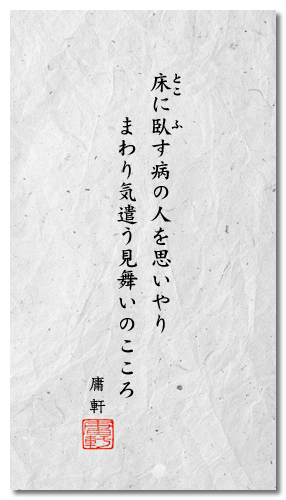 床に臥す病の人を思いやり
まわり気遣う見舞いのこころ
庸軒